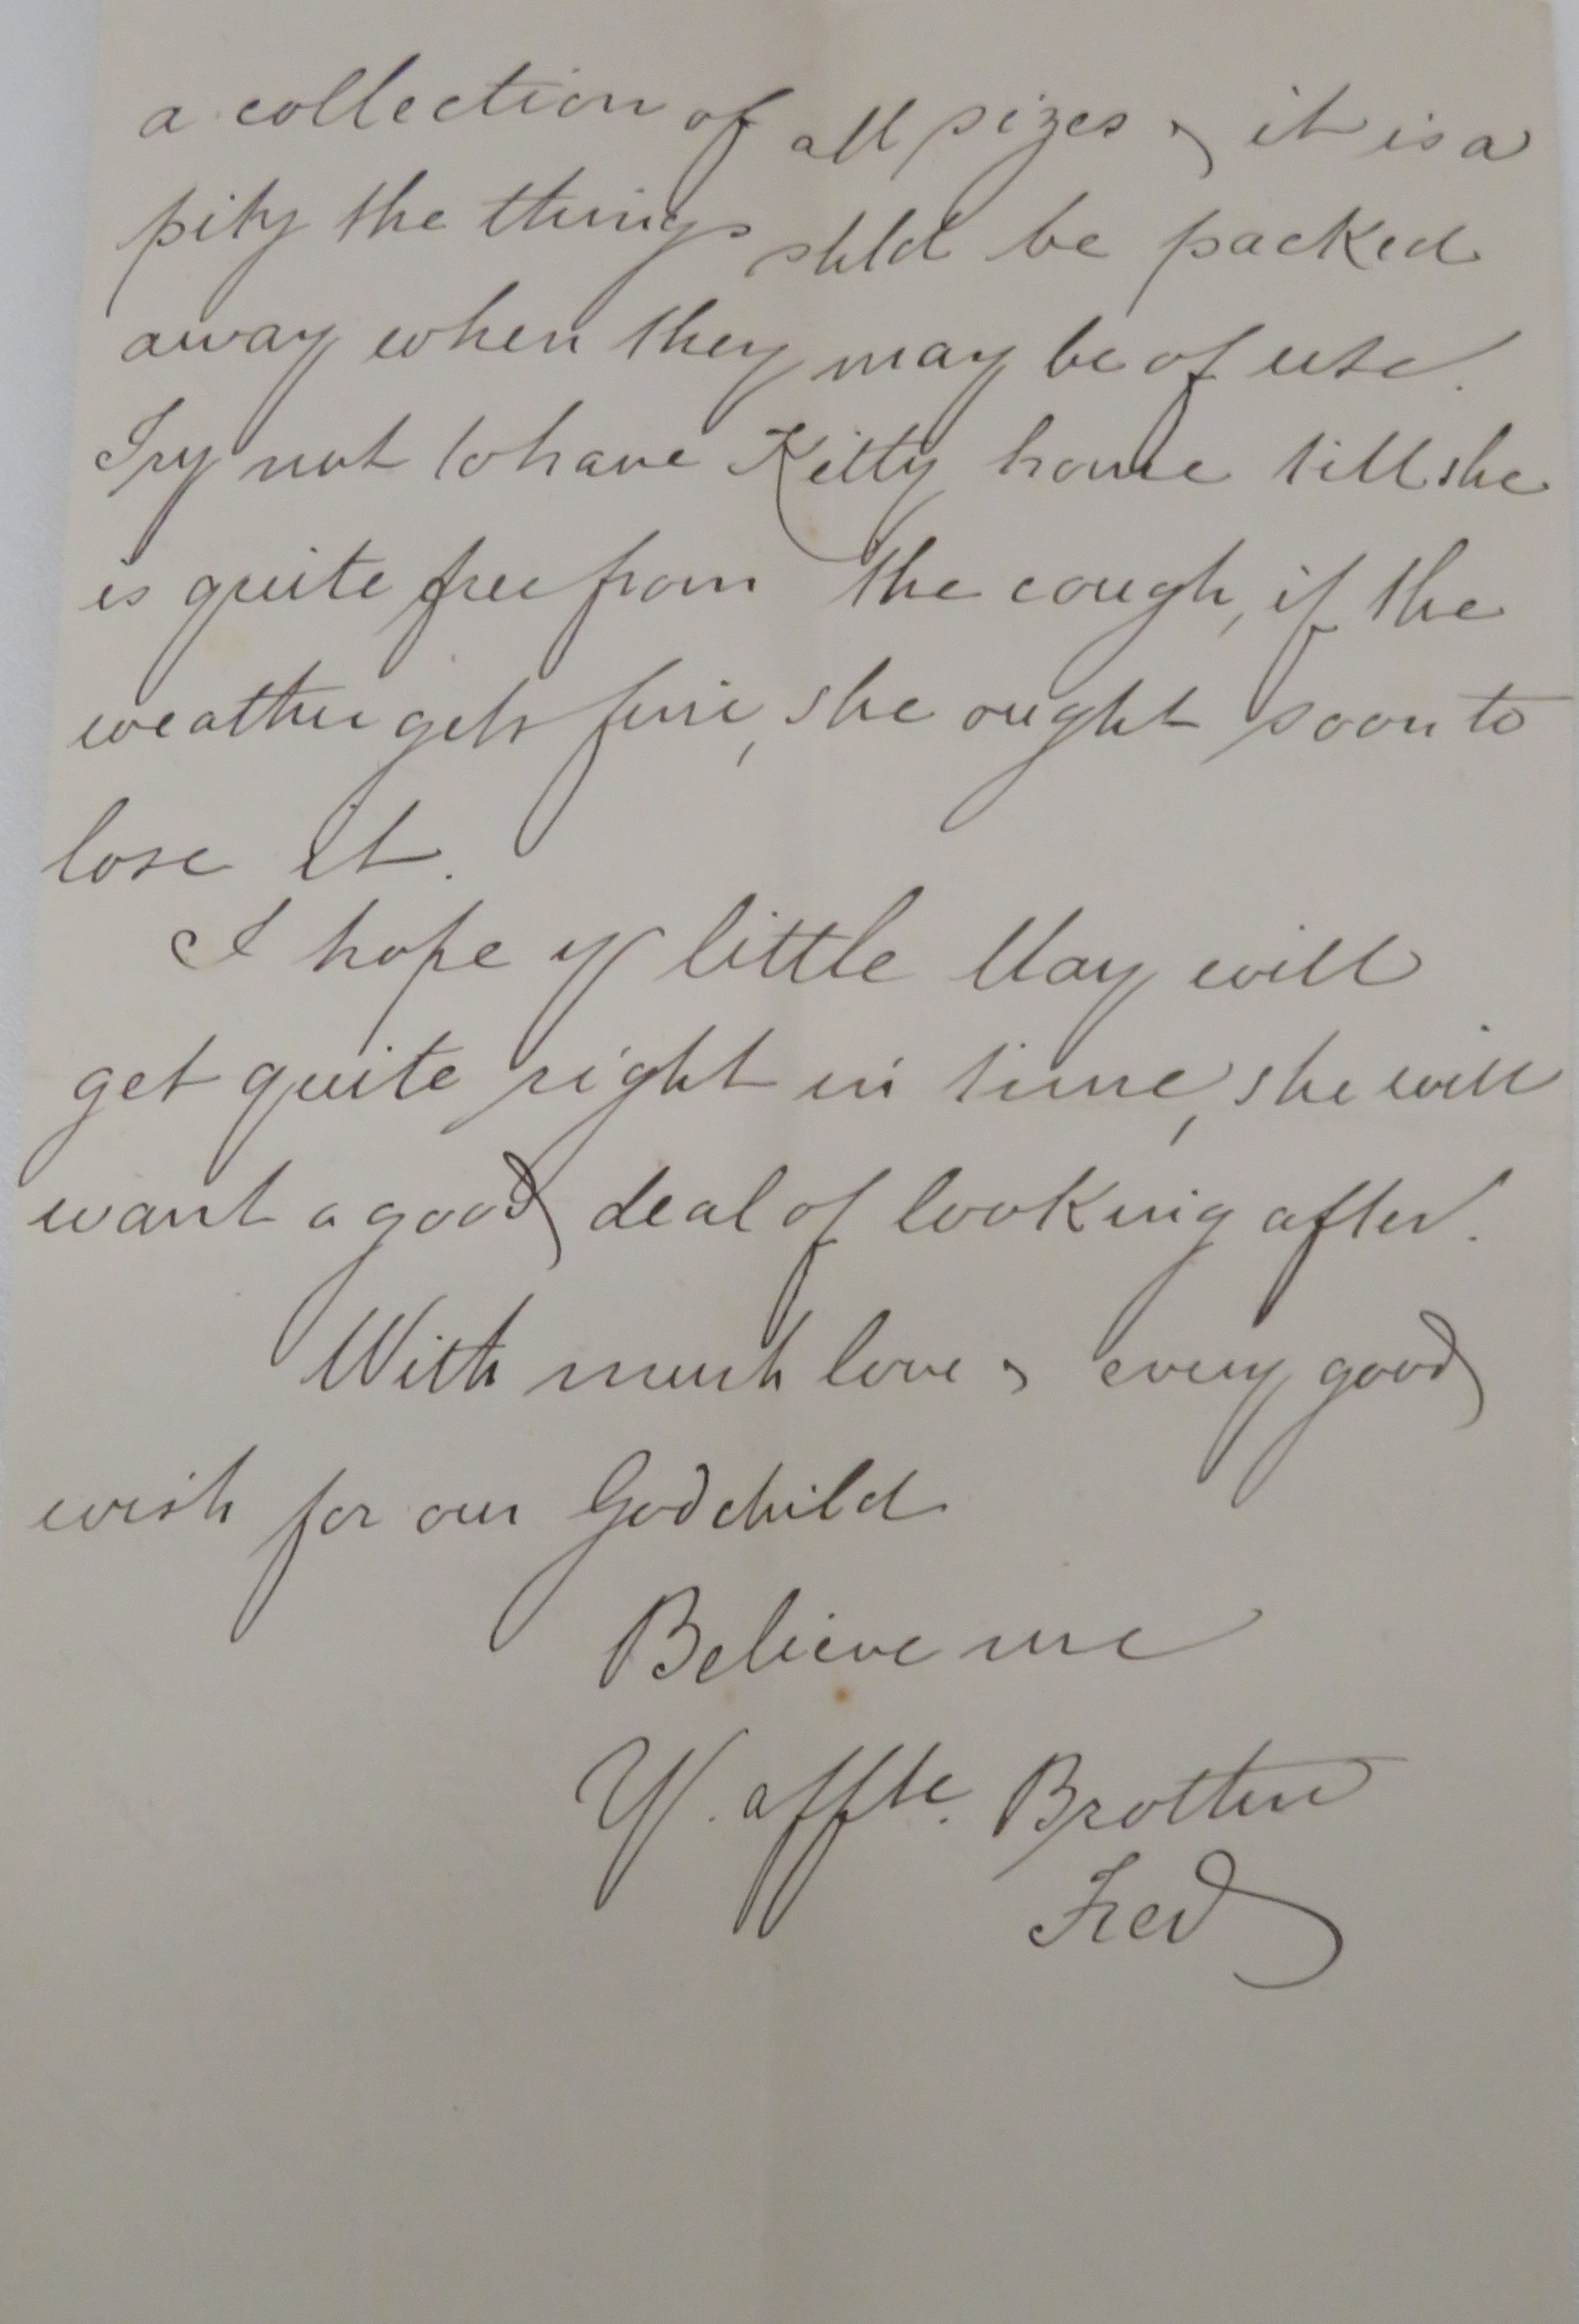 a collection of all sizes & it is a
pity the things shld be packed
away when they may be of use.
Try not to have Kitty home till she
is quite free from the cough, if the
weather gets fine, she ought soon to
lose it.
I hope yr little May will
get quite right in time, she will
want a good deal of looking after.
With much love & every good
wish for our Godchild
Believe me
Yr. affte. Brother
Fred